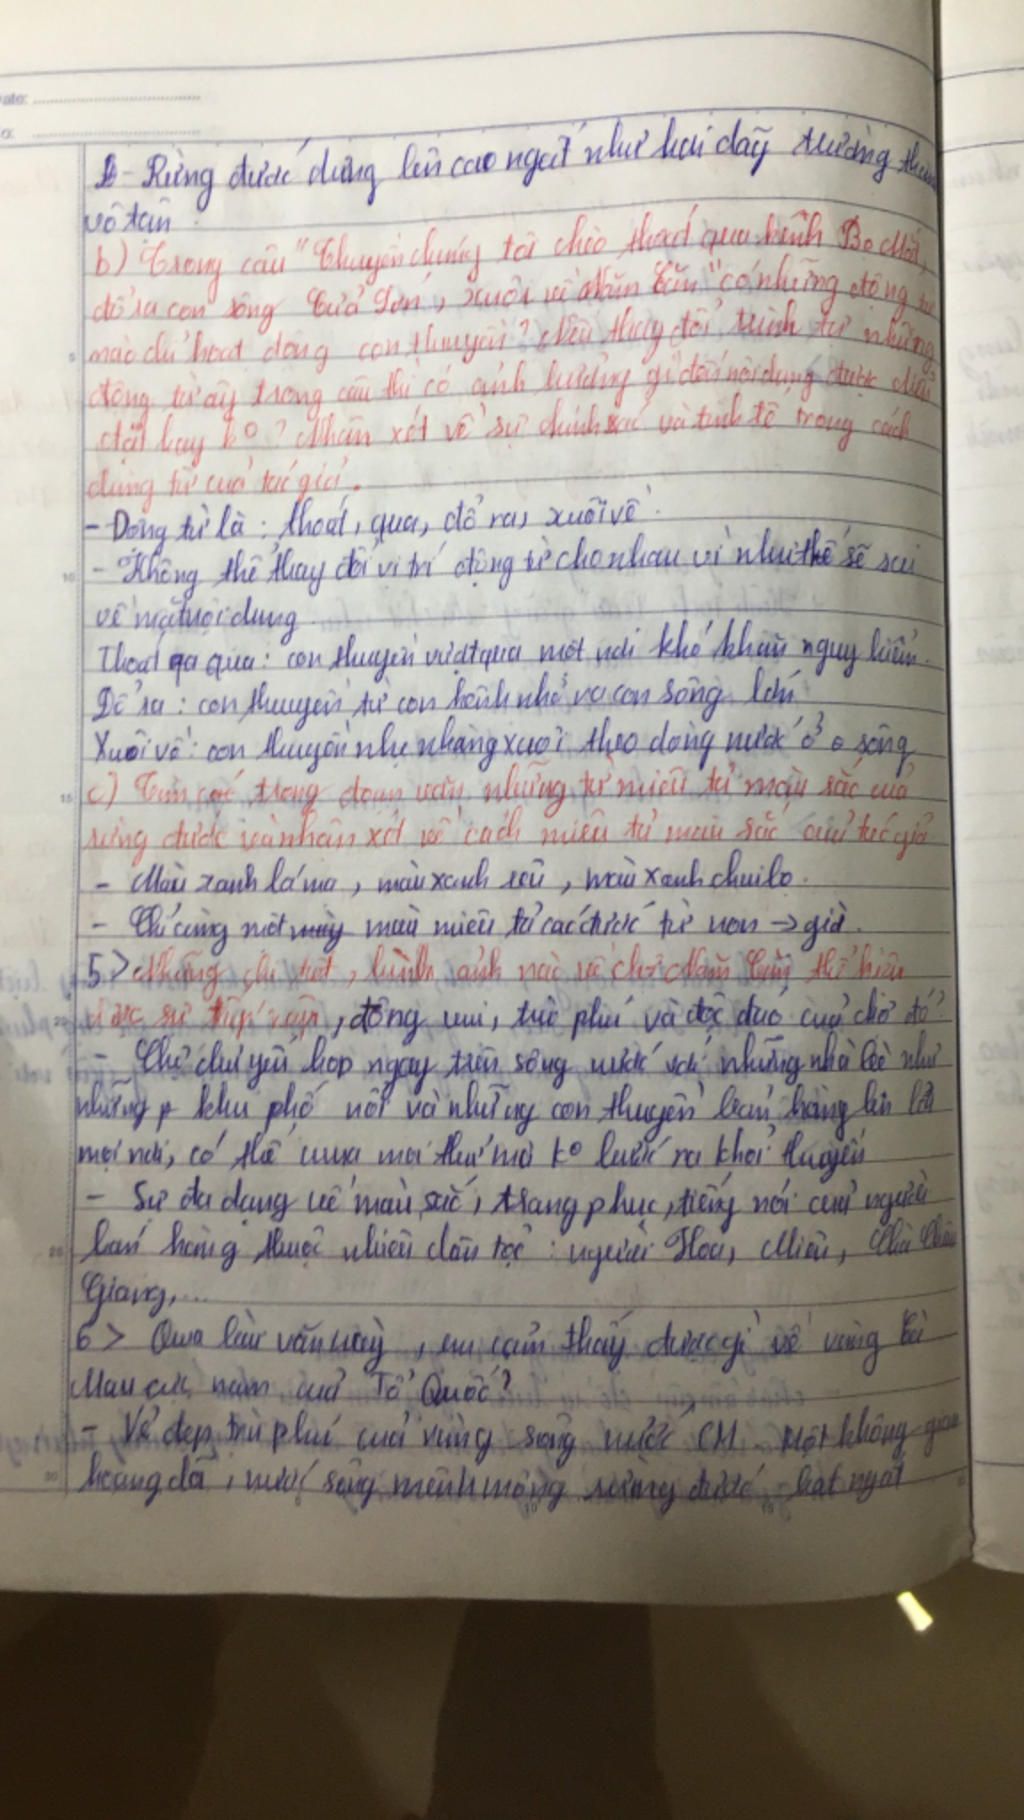 Date:
- Rừng đước dựng lên cao ngất như hai dãy trường thành
vô tận.
b) Trong câu "Thuyền chúng tôi chèo thoát qua kênh Bọ Mắt,
đổ ra con sông Cửa Lớn, xuôi về Năm Căn" có những động từ
nào chỉ hoạt động con thuyền? Nếu thay đổi trình tự những
động từ ấy trong câu thì có ảnh hưởng gì đến nội dung được diễn
đạt hay ko? Nhận xét về sự chính xác và tinh tế trong cách
dùng từ của tác giả.
- Động từ là: thoát, qua, đổ ra, xuôi về.
- Không thể thay đổi vị trí động từ cho nhau vì như thế sẽ sai
về mặt nội dung.
Thoát qua: con thuyền vượt qua một nơi khó khăn nguy hiểm.
Đổ ra: con thuyền từ con kênh nhỏ ra con sông lớn
Xuôi về: con thuyền nhẹ nhàng xuôi theo dòng nước ở sông
c) Tìm các trong đoạn văn những từ miêu tả màu sắc của
rừng đước và nhận xét về cách miêu tả màu sắc của tác giả
- Màu xanh lá mạ, màu xanh rêu, màu xanh chai lọ.
- Chỉ cùng một màu miêu tả các đước từ non → già.
5> Những chi tiết, hình ảnh nào về chợ Năm Căn thể hiện
được sự tấp nập, đông vui, trù phú và độc đáo của chợ đó?
- Chợ chủ yếu họp ngay trên sông nước với những nhà bè như
những khu phố nổi và những con thuyền bán hàng len lỏi
mọi nơi, có thể mua mọi thứ mà ko bước ra khỏi thuyền
- Sự đa dạng về màu sắc, trang phục, tiếng nói của người
bán hàng thuộc nhiều dân tộc: người Hoa, Miên, Chà Châu
Giang,...
6> Qua bài văn này, em cảm thấy được gì về vùng Cà
Mau cực nam của Tổ Quốc?
- Vẻ đẹp trù phú của vùng sông nước CM. Một không gian
hoang dã, nước sông mênh mông rừng đước bạt ngát